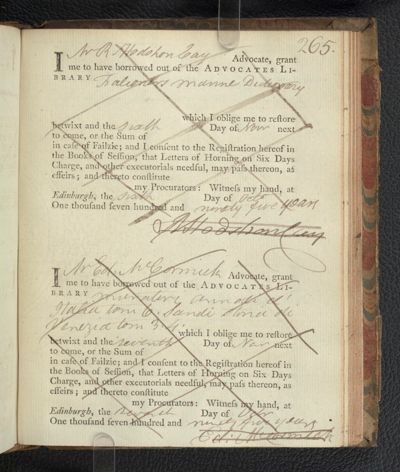 265.
I Mr R. Hodshon Cay Advocate, grant
me to have borrowed out of the ADVOCATES LI-
BRARY Falconers marine Dictionary
which I oblige me to restore
betwixt and the sixth Day of Nov next
to come, or the Sum of
in case of Failzie; and I consent to the Registration hereof in
the Books of Session, that Letters of Horning on Six Days
Charge, and other executorials needful, may pass thereon, as
effeirs; and thereto constitute
my Procurators: Witness my hand, at
Edinburgh, the sixth Day of Octr
One thousand seven hundred and ninety five years
R Hodshon Cay
I Mr Ed. McCormick Advocate, grant
me to have borrowed out of the ADVOCATES LI-
BRARY muratori annali d'
Italia tom 6, Sandi storia de
Venezia tom 3 4 which I oblige me to restore
betwixt and the seventh Day of Nov next
to come, or the Sum of
in case of Failzie; and I consent to the Registration hereof in
the Books of Session, that Letters of Horning on Six Days
Charge, and other executorials needful, may pass thereon, as
effeirs; and thereto constitute
my Procurators: Witness my hand, at
Edinburgh, the seventh Day of Octr
One thousand seven hundred and ninety five years
Ed. McCormick